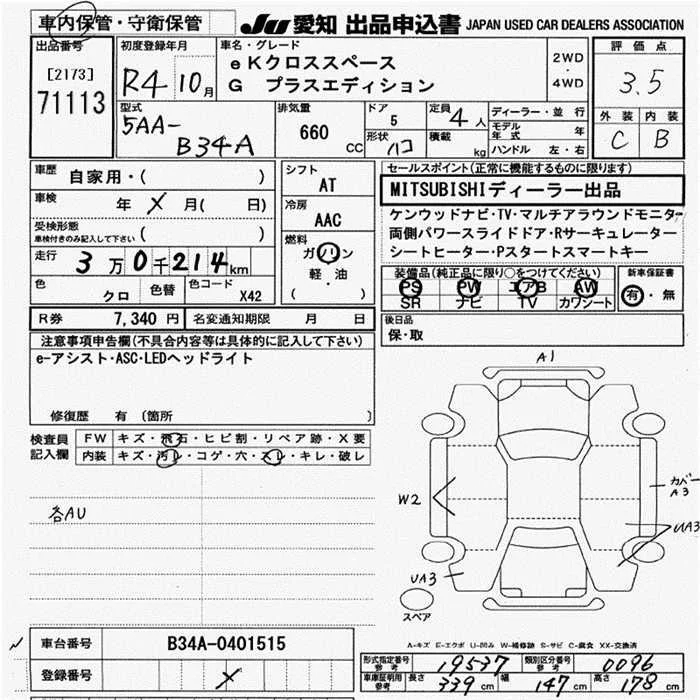 車内保管・守衛保管
JU 愛知 出品申込書 JAPAN USED CAR DEALERS ASSOCIATION
出品番号
[2173]
71113
初度登録年月
R4年 10月
車名・グレード
eKクロススペース
G プラスエディション
2WD
・
4WD
評価点
3.5
外装 内装
C B
型式
5AA-
B34A
排気量
660
CC
ドア
5
形状
ハコ
定員
4人
積載
kg
ディーラー・並行
モデル年式 年
ハンドル 左・右
車歴
自家用・( )
車検
年 X 月( 日)
受検形態
車検付きのみ記入して下さい ( )
走行
3万0千214km
色
クロ
色替
色コード
X42
シフト
AT
冷房
AAC
燃料
ガソリン
軽・油
( )
セールスポイント(正常に機能するものに限ります)
MITSUBISHIディーラー出品
ケンウッドナビ・TV・マルチアラウンドモニター
両側パワースライドドア・Rサーキュレーター
シートヒーター・Pスタートスマートキー
装備品(純正品に限り○をつけてください)
PS PW エアB AW
SR ナビ TV カワシート
新車保証書
有・無
R券 7,340 円 名変通知期限 月 日
後日品
保・取
注意事項申告欄(不具合内容等は具体的に記入して下さい)
e-アシスト・ASC・LEDヘッドライト
修復歴 有 [箇所 ]
検査員
記入欄
FW キズ・飛石・ヒビ割・リペア跡・X要
内装 キズ・汚レ・コゲ・穴・スレ・キレ・破レ
各AU
A1
W2
カバー
A3
UA3
UA3
スペア
A-キズ E-エクボ U-凹み W-補修跡 S-サビ C-腐食 XX-交換済
車台番号 B34A-0401515
登録番号 X
形式指定番号
参考
19537
類別区分番号
参考
0096
車庫証明用
参考
長さ 339 cm 幅 147 cm 高さ 178 cm